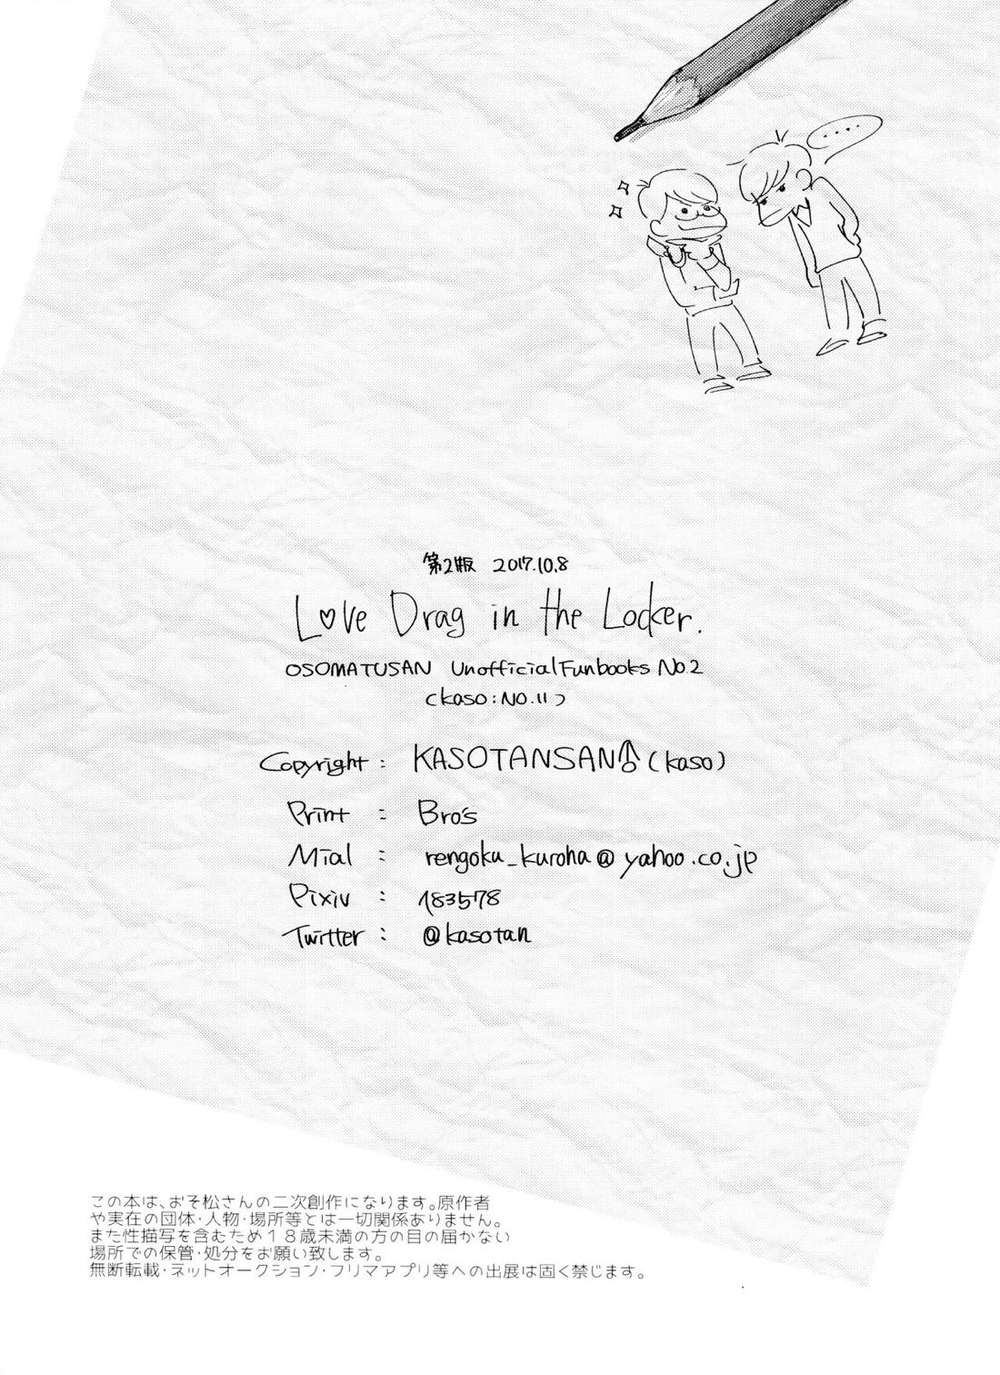 ....
第2版 2017.10.8
L♡ve Drag in the Locker.
OSOMATUSAN UnofficialFunbooks No.2
(kaso:NO.11)
Copyright : KASOTANSAN (kaso)
Print : Bro's
Mial : rengoku_kuroha@yahoo.co.jp
Pixiv : 183578
Twitter : @kasotan
この本は、おそ松さんの二次創作になります。原作者
や実在の団体・人物・場所等とは一切関係ありません。
また性描写を含むため18歳未満の方の目の届かない
場所での保管・処分をお願い致します。
無断転載・ネットオークション・フリマアプリ等への出展は固く禁じます。